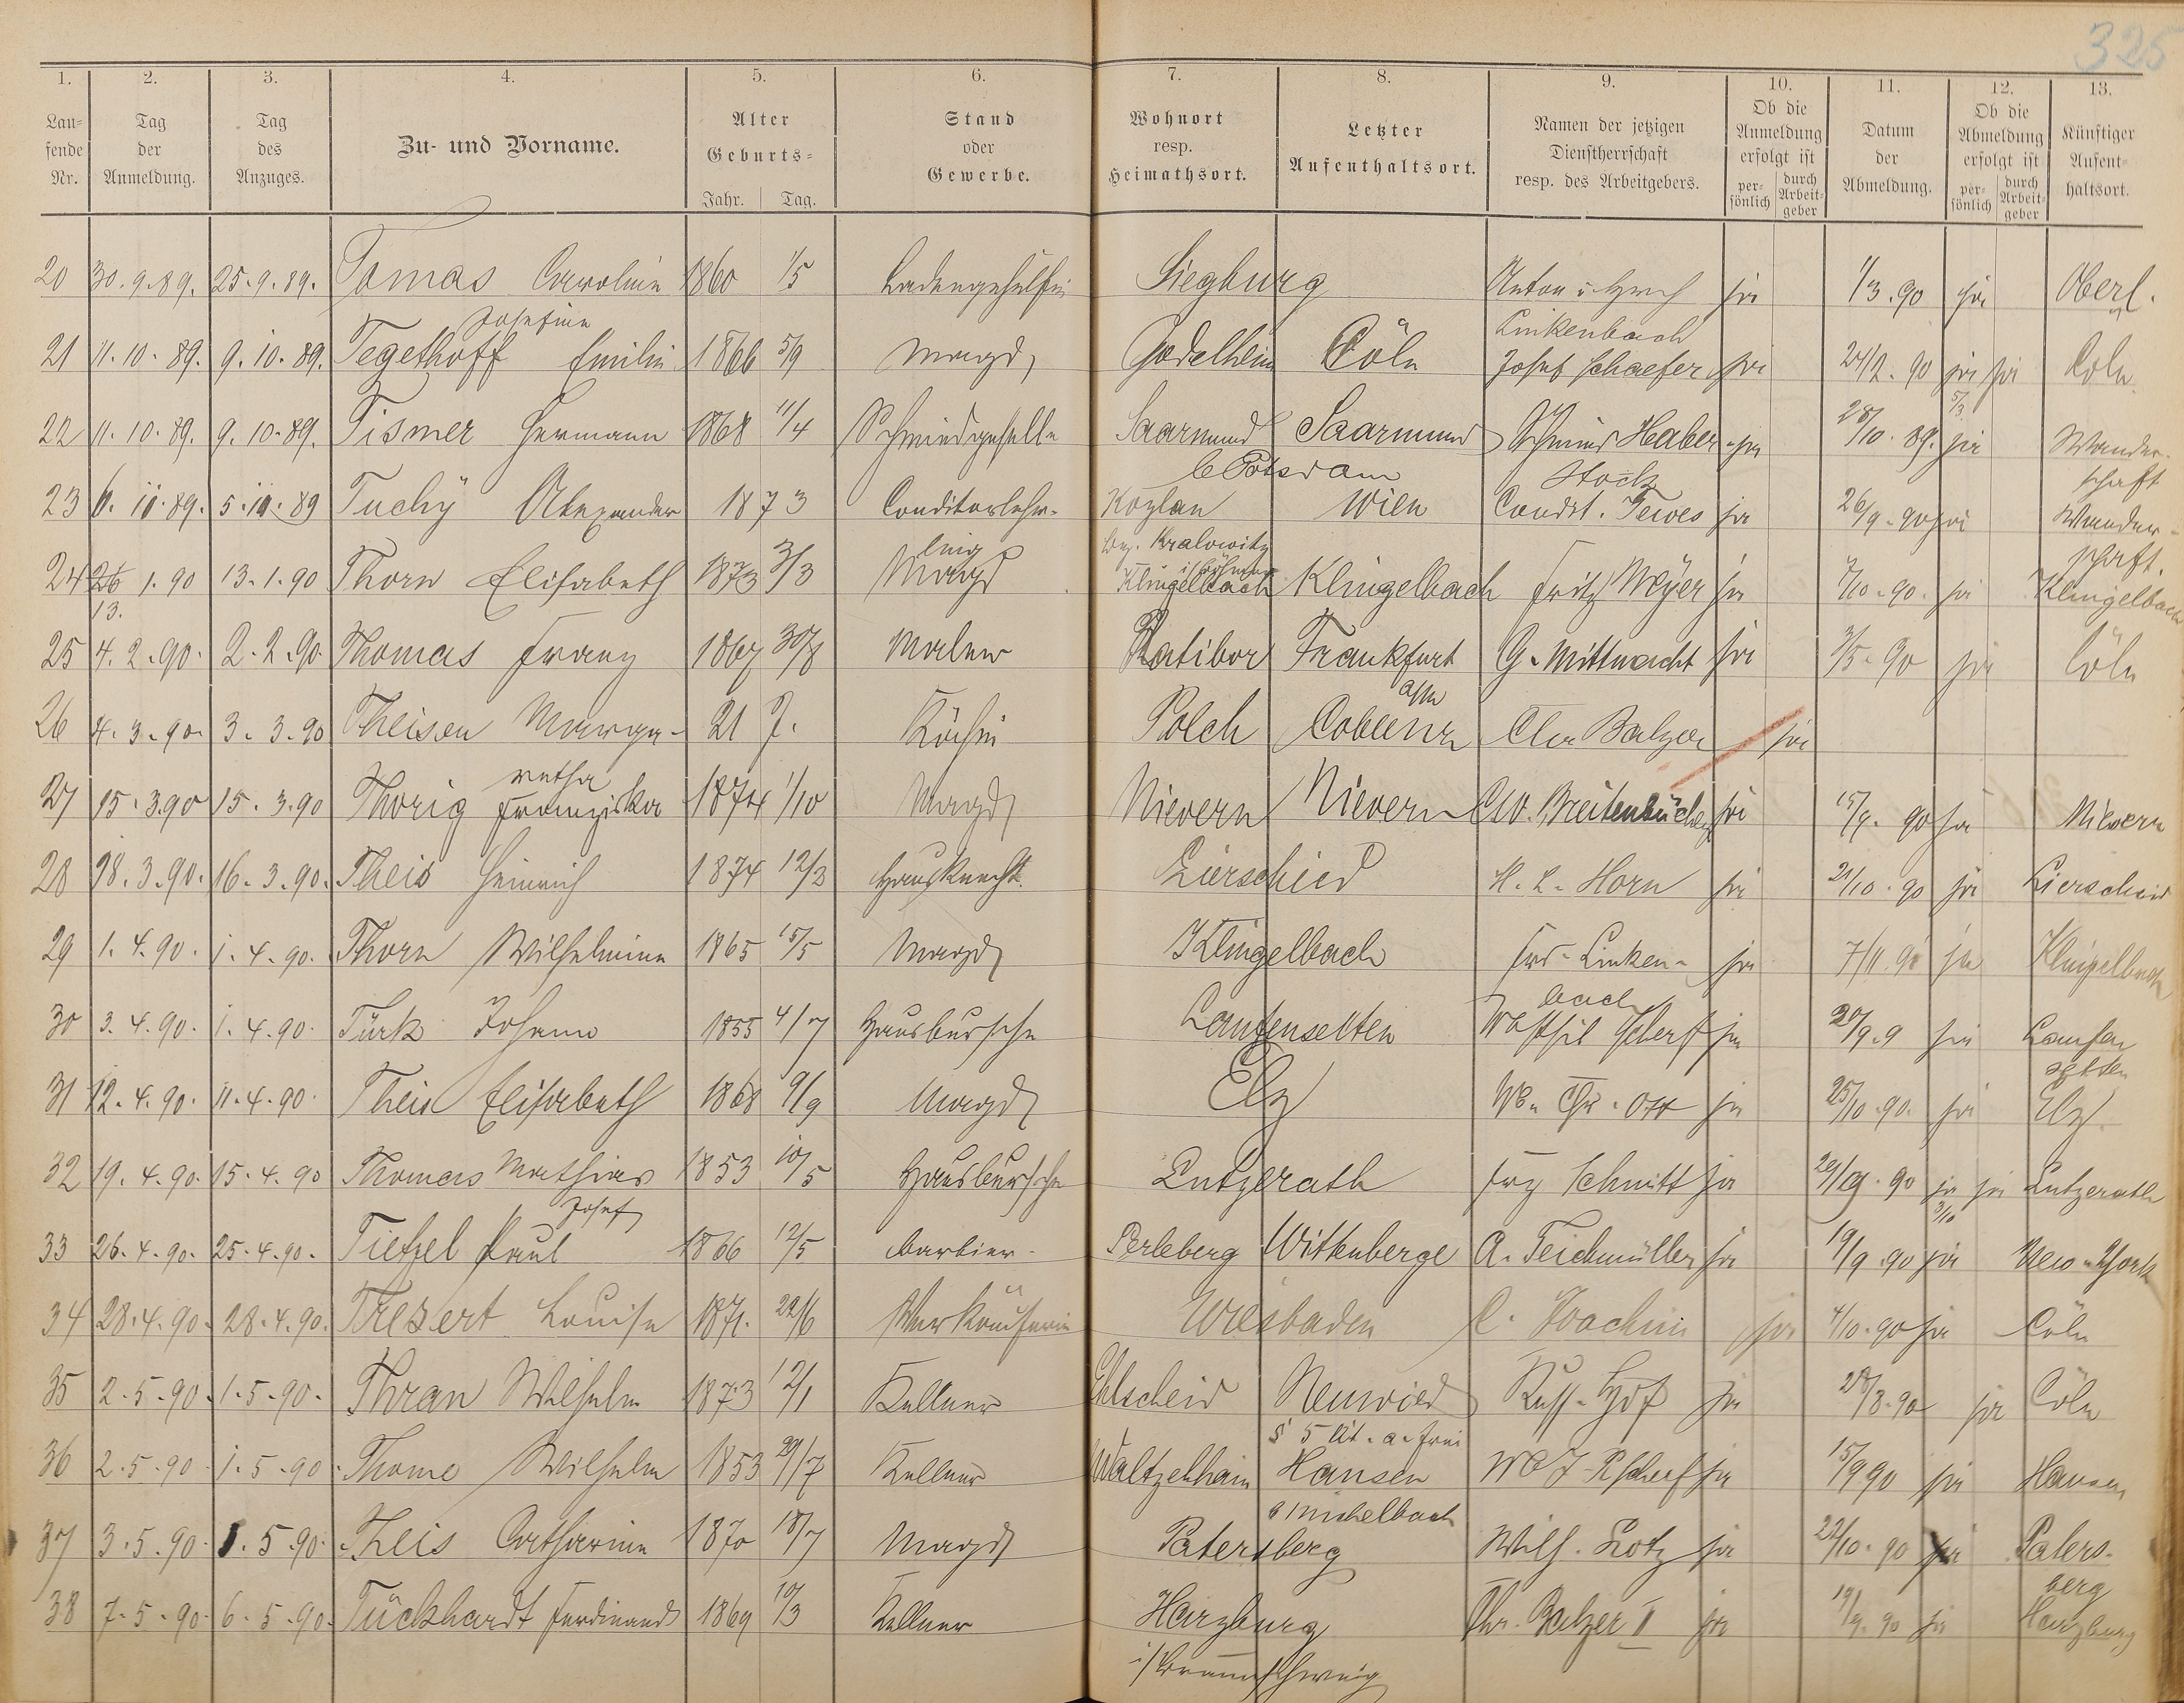 325
1. 2. 3. 4. 5. 6. 7. 8. 9. 10. 11. 12. 13.
Lau=
fende
Nr.
Tag
der
Anmeldung.
Tag
des
Anzuges.
Zu- und Vorname.
Alter
Geburts=
Jahr. Tag.
Stand
oder
Gewerbe.
Wohnort
resp.
Heimathsort.
Letzter
Aufenthaltsort.
Namen der jetzigen
Dienstherrschaft
resp. des Arbeitgebers.
Ob die
Anmeldung
erfolgt ist
per-
sönlich
durch
Arbeit-
geber
Datum
der
Abmeldung.
Ob die
Abmeldung
erfolgt ist
per-
sönlich
durch
Arbeit-
geber
Künftiger
Aufent-
haltsort.
20 30.9.89. 25.9.89. Tomas Caroline 1860 1/5 Ladengehülfin Siegburg Anton ja 1/3.90 ja Oberl.
Josefine Linkenbach
21 11.10.89. 9.10.89. Tegethoff Emilie 1866 5/9 Magd Godelheim Cöln Josef Schaefer ja 24/2.90 ja ja Cöln
5/3
22 11.10.89. 9.10.89. Tismer Hermann 1868 11/4 Schmiedgeselle Saarmund Saarmund Haber- ja 28/10.89. ja Wander-
b Potsdam stock schaft
23 6.10.89. 5.10.89 Tuchÿ Alexander 1873 Conditorlehr- Kozlan Wien Condit. Tewes ja 26/9.90 ja Wander-
ling Bez. Kralowitz schaft.
i/Böhmen
24 26 1.90 13.1.90 Thorn Elisabeth 1873 3/3 Magd Klingelbach Klingelbach Fritz Meÿer ja 7/10.90. ja Klingelbach
13.
25 4.2.90. 2.2.90 Thomas Franz 1867 30/8 Maler Ratibor Frankfurt G. Mittnacht ja 3/5.90 ja Cöln
a/M
26 4.3.90. 3.3.90 Theisen Marga- 21 J. Köchin Polch Coblenz Chr Balzer ja
retha
27 15.3.90 15.3.90 Thorig Franziska 1874 1/10 Magd Nievern Nievern Breitenbücher ja 15/9.90 ja Nievern
28 18.3.90. 16.3.90. Theis Heinrich 1874 12/3 Hausknecht. Lierschied H. L. Horn ja 21/10.90 ja Lierscheid
29 1.4.90. 1.4.90. Thorn Wilhelmine 1865 15/5 Magd Klingelbach Linken- ja 7/11.90 ja Klingelbach
bach
30 3.4.90. 1.4.90. Türk Johann 1855 4/7 Hausbursche Laufenselten Scherf ja 20/9.9 ja Laufen
selten
31 12.4.90. 11.4.90. Theis Elisabeth 1868 9/9 Magd Elz Ww. Chr. Ott ja 25/10.90. ja Elz.
32 19.4.90. 15.4.90 Thomas Mathias 1853 10/5 Hausbursche Lutzerath Frz Schmitt ja 29/9.90 ja ja Lutzerath
Josef 3/10
33 26.4.90. 25.4.90. Tietzel Paul 1866 12/5 Barbier. Perleberg Wittenberge A. Teichmüller ja 19/9.90 ja New-York
34 28.4.90. 28.4.90. Tresert Louise 1871. 22/6 Verkäuferin Wiesbaden C. Joachim ja 4/10.90 ja Cöln
35 2.5.90. 1.5.90. Thran Wilhelm 1873 12/1 Kellner Ehlscheid Neuwied Russ. Hof ja 28/8.90 ja Cöln
36 2.5.90. 1.5.90. Thome Wilhelm 1853 29/7 Kellner Waltzenhain Hansen ja 15/9 90 ja Hausen
b Michelbach
37 3.5.90. 1.5.90. Theis Catharine 1870 18/7 Magd Patersberg Wilh. Lotz ja 22/10.90 ja Paters-
berg
38 7.5.90. 6.5.90. Tückhardt Ferdinand 1869 10/3 Kellner Harzburg Chr. Balzer II ja 19/9.90 ja Harzburg
i/Braunschweig